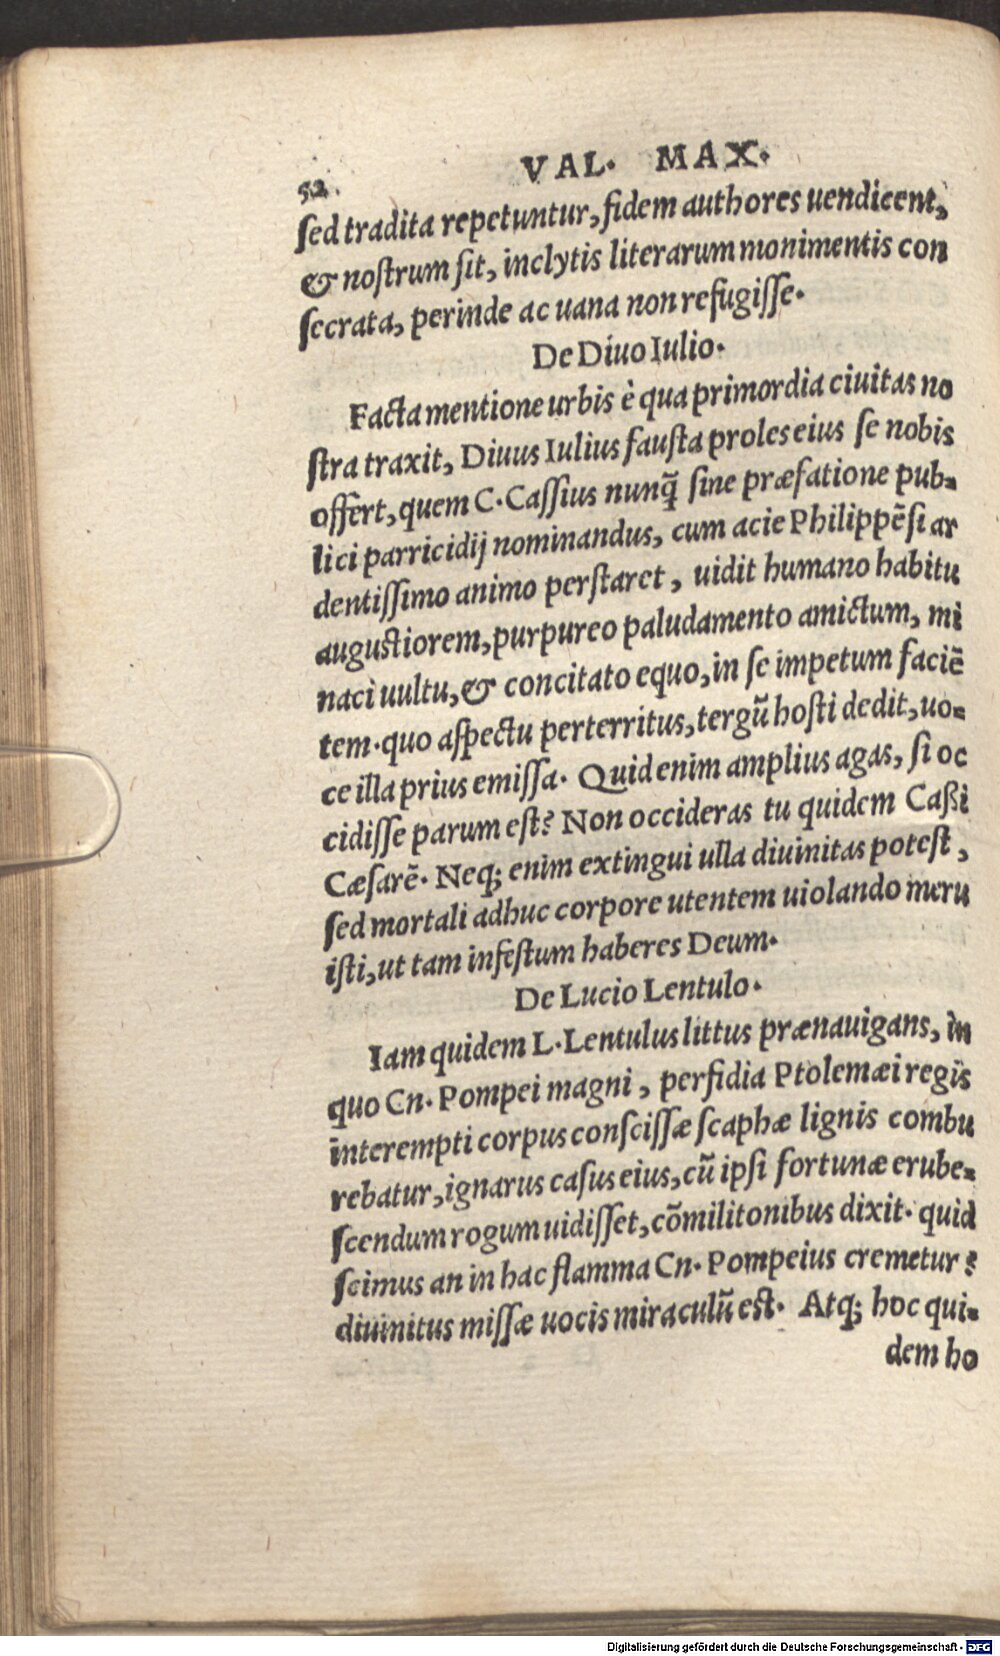 52. VAL. MAX.
ſed tradita repetuntur, fidem authores uendicent,
& noſtrum ſit, inclytis literarum monimentis con
ſecrata, perinde ac uana non refugiſſe.
De Diuo Iulio.
Facta mentione urbis è qua primordia ciuitas no
ſtra traxit, Diuus Iulius fauſta proles eius ſe nobis
offert, quem C. Caſſius nunq̃ ſine præfatione pub-
lici parricidij nominandus, cum acie Philippẽſi ar
dentiſſimo animo perſtaret, uidit humano habitu
auguſtiorem, purpureo paludamento amictum, mi
naci uultu, & concitato equo, in ſe impetum faciẽ
tem. quo aſpectu perterritus, tergũ hoſti dedit, uo-
ce illa prius emiſſa. Quid enim amplius agas, ſi oc
cidiſſe parum eſt? Non occideras tu quidem Caßi
Cæſarẽ. Neq; enim extingui ulla diuinitas poteſt,
ſed mortali adhuc corpore utentem uiolando meru
iſti, ut tam infeſtum haberes Deum.
De Lucio Lentulo.
Iam quidem L. Lentulus littus prænauigans, in
quo Cn. Pompei magni, perfidia Ptolemæi regis
interempti corpus conſciſſæ ſcaphæ lignis combu
rebatur, ignarus caſus eius, cũ ipſi fortunæ erube-
ſcendum rogum uidiſſet, cõmilitonibus dixit. quid
ſcimus an in hac flamma Cn. Pompeius cremetur?
diuinitus miſſæ uocis miraculũ eſt. Atq; hoc qui-
dem ho
Digitalisierung gefördert durch die Deutsche Forschungsgemeinschaft - DFG